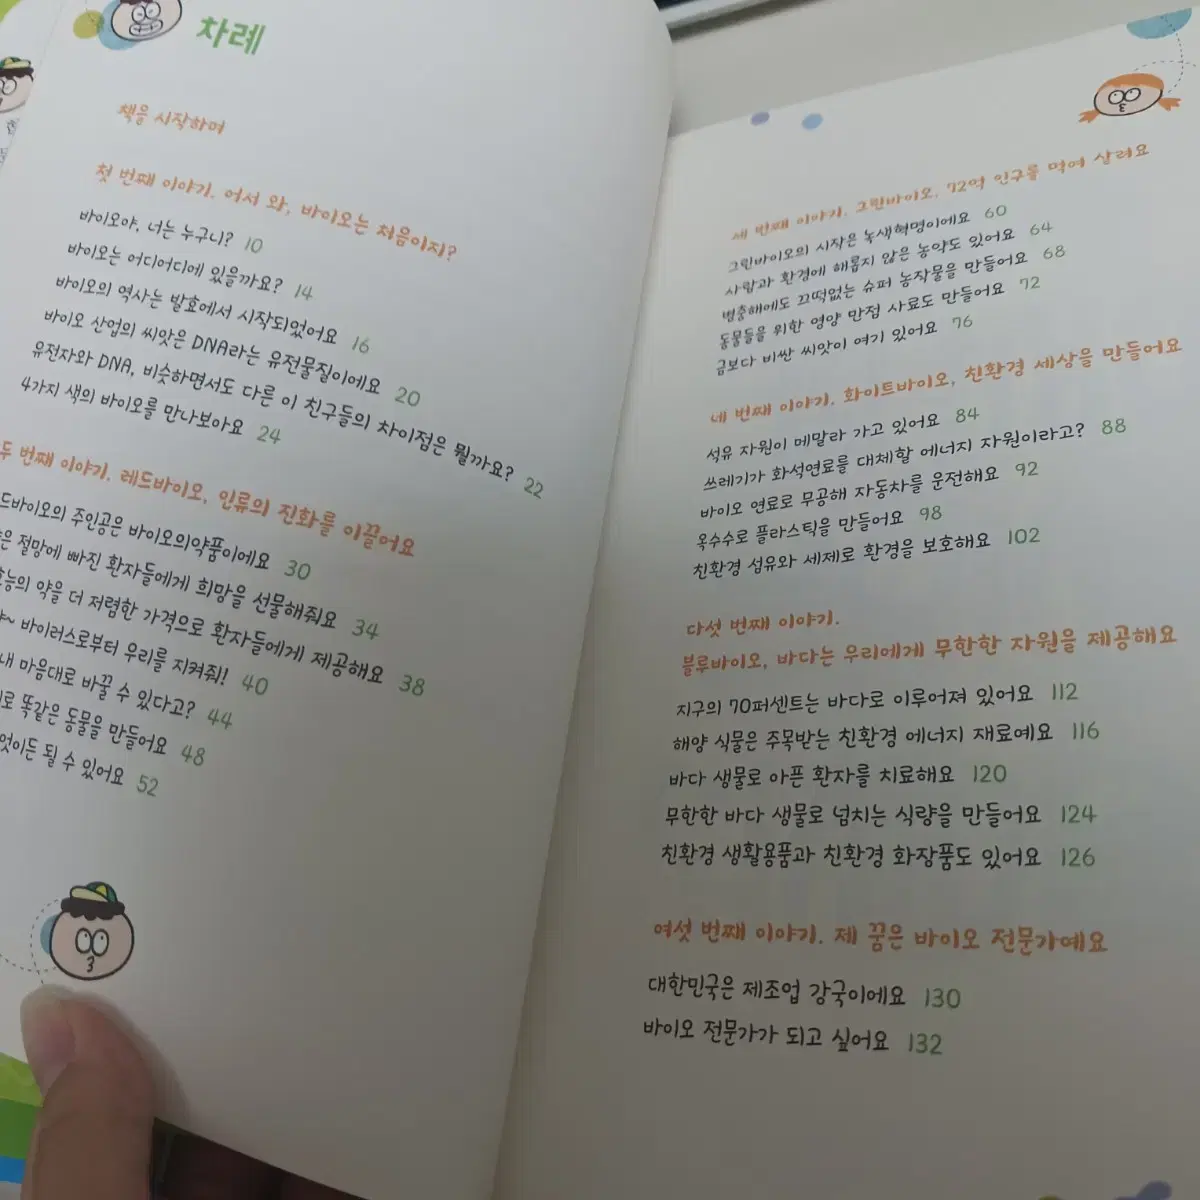 차례
책을 시작하며
첫 번째 이야기. 어서 와, 바이오는 처음이지?
바이오야, 너는 누구니? 10
바이오는 어디어디에 있을까요? 14
바이오의 역사는 발효에서 시작되었어요 16
바이오 산업의 씨앗은 DNA라는 유전물질이에요 20
유전자와 DNA, 비슷하면서도 다른 이 친구들의 차이점은 뭘까요? 22
4가지 색의 바이오를 만나보아요 24
두 번째 이야기. 레드바이오, 인류의 진화를 이끌어요
드바이오의 주인공은 바이오의약품이에요 30
절망에 빠진 환자들에게 희망을 선물해줘요 34
효능의 약을 더 저렴한 가격으로 환자들에게 제공해요 38
바이러스로부터 우리를 지켜줘! 40
내 마음대로 바꿀 수 있다고? 44
로 똑같은 동물을 만들어요 48
엇이든 될 수 있어요 52
세 번째 이야기. 그린바이오, 72억 인구를 먹여 살려요
그린바이오의 시작은 녹색혁명이에요 60
사람과 환경에 해롭지 않은 농약도 있어요 64
병충해에도 끄떡없는 슈퍼 농작물을 만들어요 68
동물들을 위한 영양 만점 사료도 만들어요 72
금보다 비싼 씨앗이 여기 있어요 76
네 번째 이야기. 화이트바이오, 친환경 세상을 만들어요
석유 자원이 메말라 가고 있어요 84
쓰레기가 화석연료를 대체할 에너지 자원이라고? 88
바이오 연료로 무공해 자동차를 운전해요 92
옥수수로 플라스틱을 만들어요 98
친환경 섬유와 세제로 환경을 보호해요 102
다섯 번째 이야기.
블루바이오, 바다는 우리에게 무한한 자원을 제공해요
지구의 70퍼센트는 바다로 이루어져 있어요 112
해양 식물은 주목받는 친환경 에너지 재료예요 116
바다 생물로 아픈 환자를 치료해요 120
무한한 바다 생물로 넘치는 식량을 만들어요 124
친환경 생활용품과 친환경 화장품도 있어요 126
여섯 번째 이야기. 제 꿈은 바이오 전문가예요
대한민국은 제조업 강국이에요 130
바이오 전문가가 되고 싶어요 132